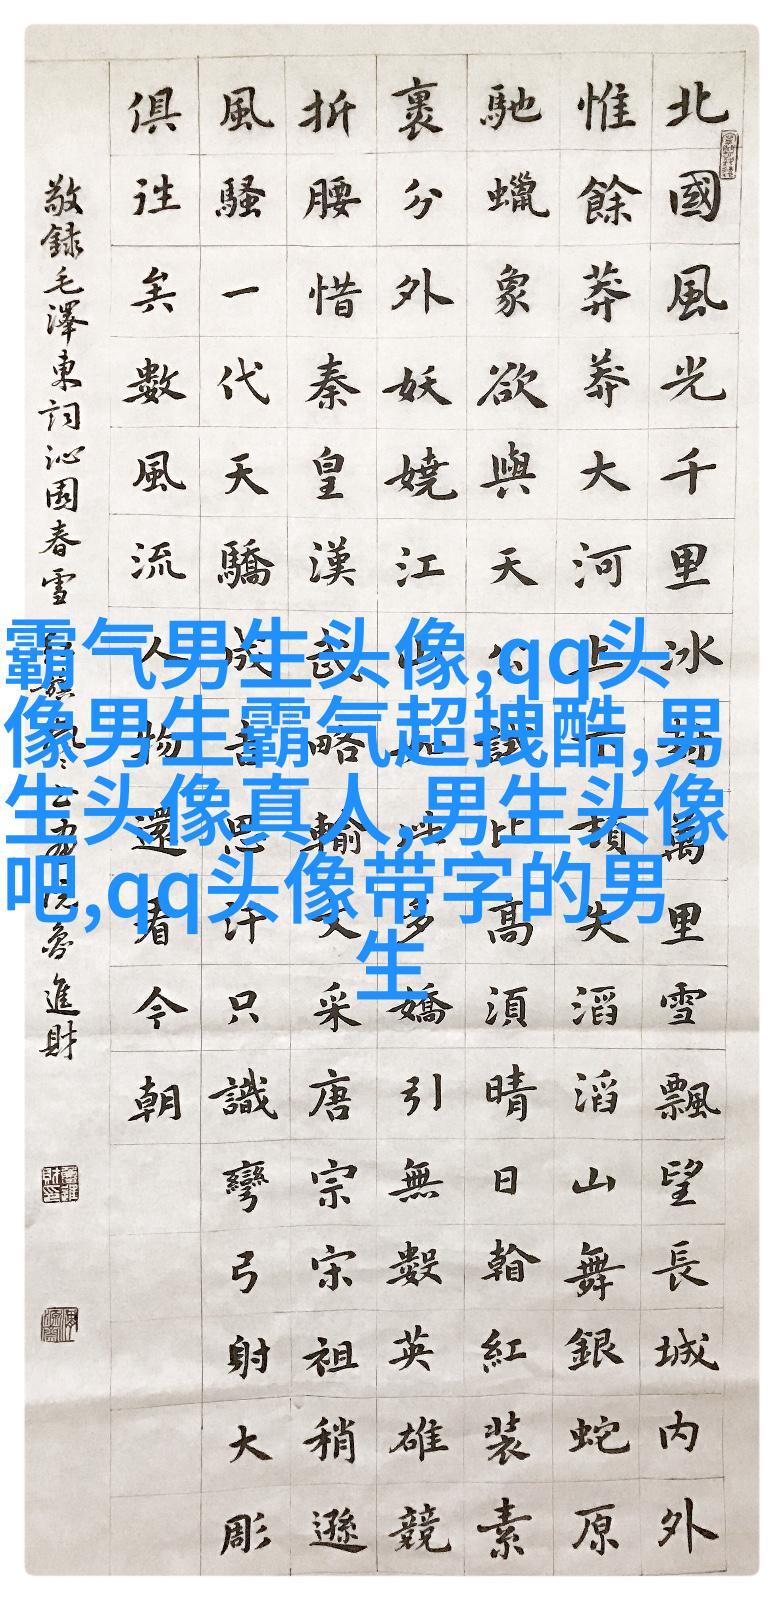 北國風光千里冰封萬里雪飄望長城内外
惟餘莽莽大河上下頓失滔滔山舞銀蛇原
馳蠟象欲與天公試比高須晴日翰紅装素
裹分外妖嬈江山如此多嬌引無數英雄競
折腰惜秦皇漢武略輸文采唐宗宋祖稍遜
風騷一代天驕成吉思汗只識彎弓射大彫
俱往矣數風流人物還看今朝
敬録毛澤東詞沁園春雪 魯進財
霸气男生头像,qq头
像男生霸气超拽酷,男
生头像真人,男生头像
吧,qq头像带字的男
生